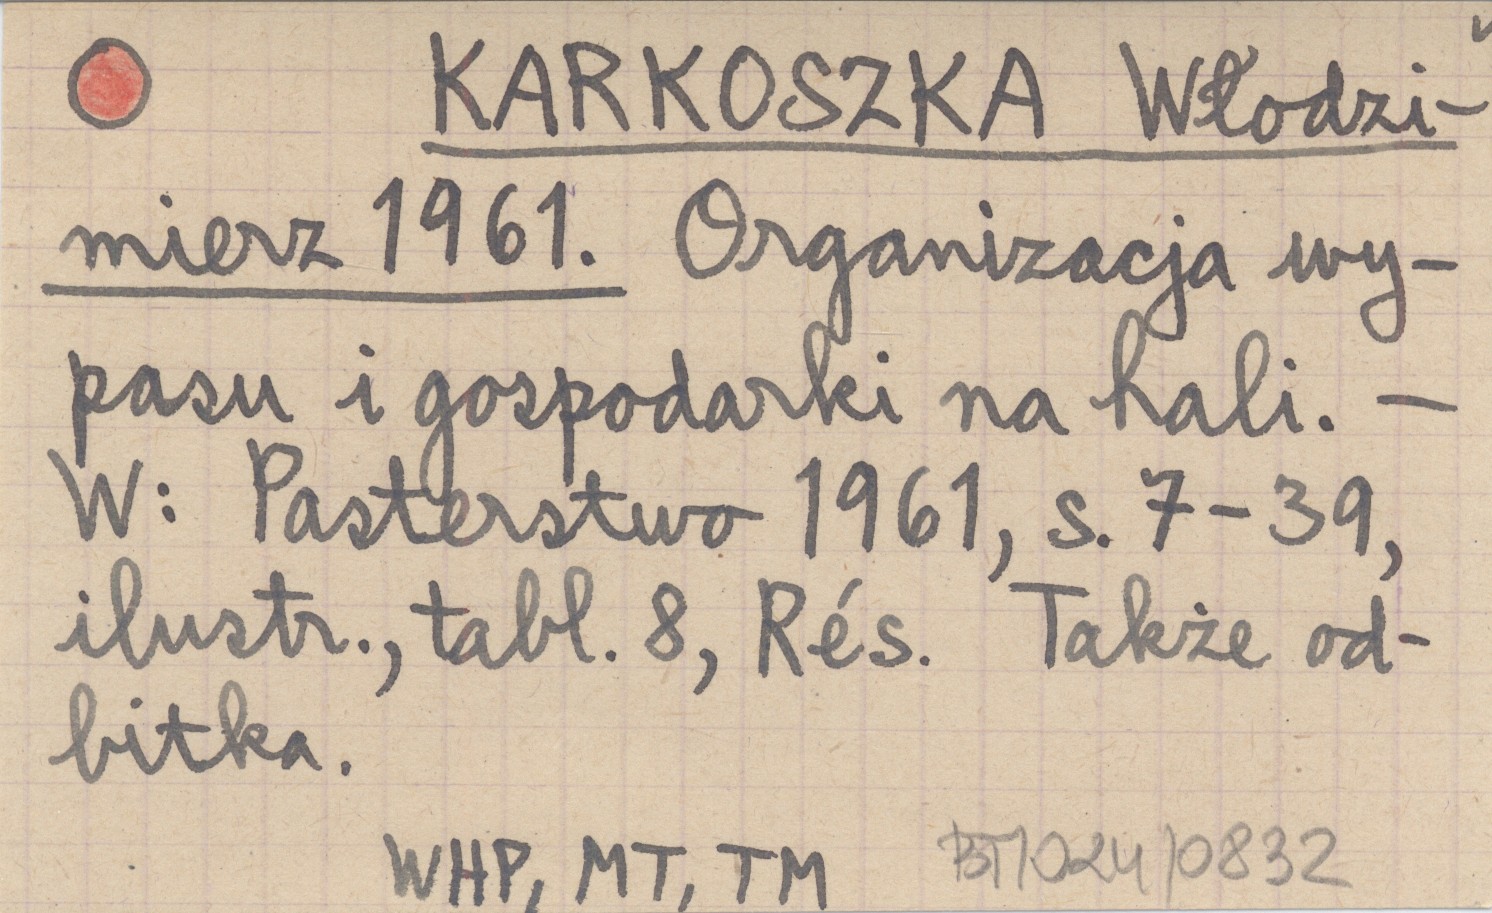 KARKOSZKA Włodzi-
mierz 1961. Organizacja wy-
pasu i gospodarki na hali. —
W: Pasterstwo 1961, s. 7-39,
ilustr., tabl. 8, Rés. Także od-
bitka.
WHP, MT, TM
BT/024/0832